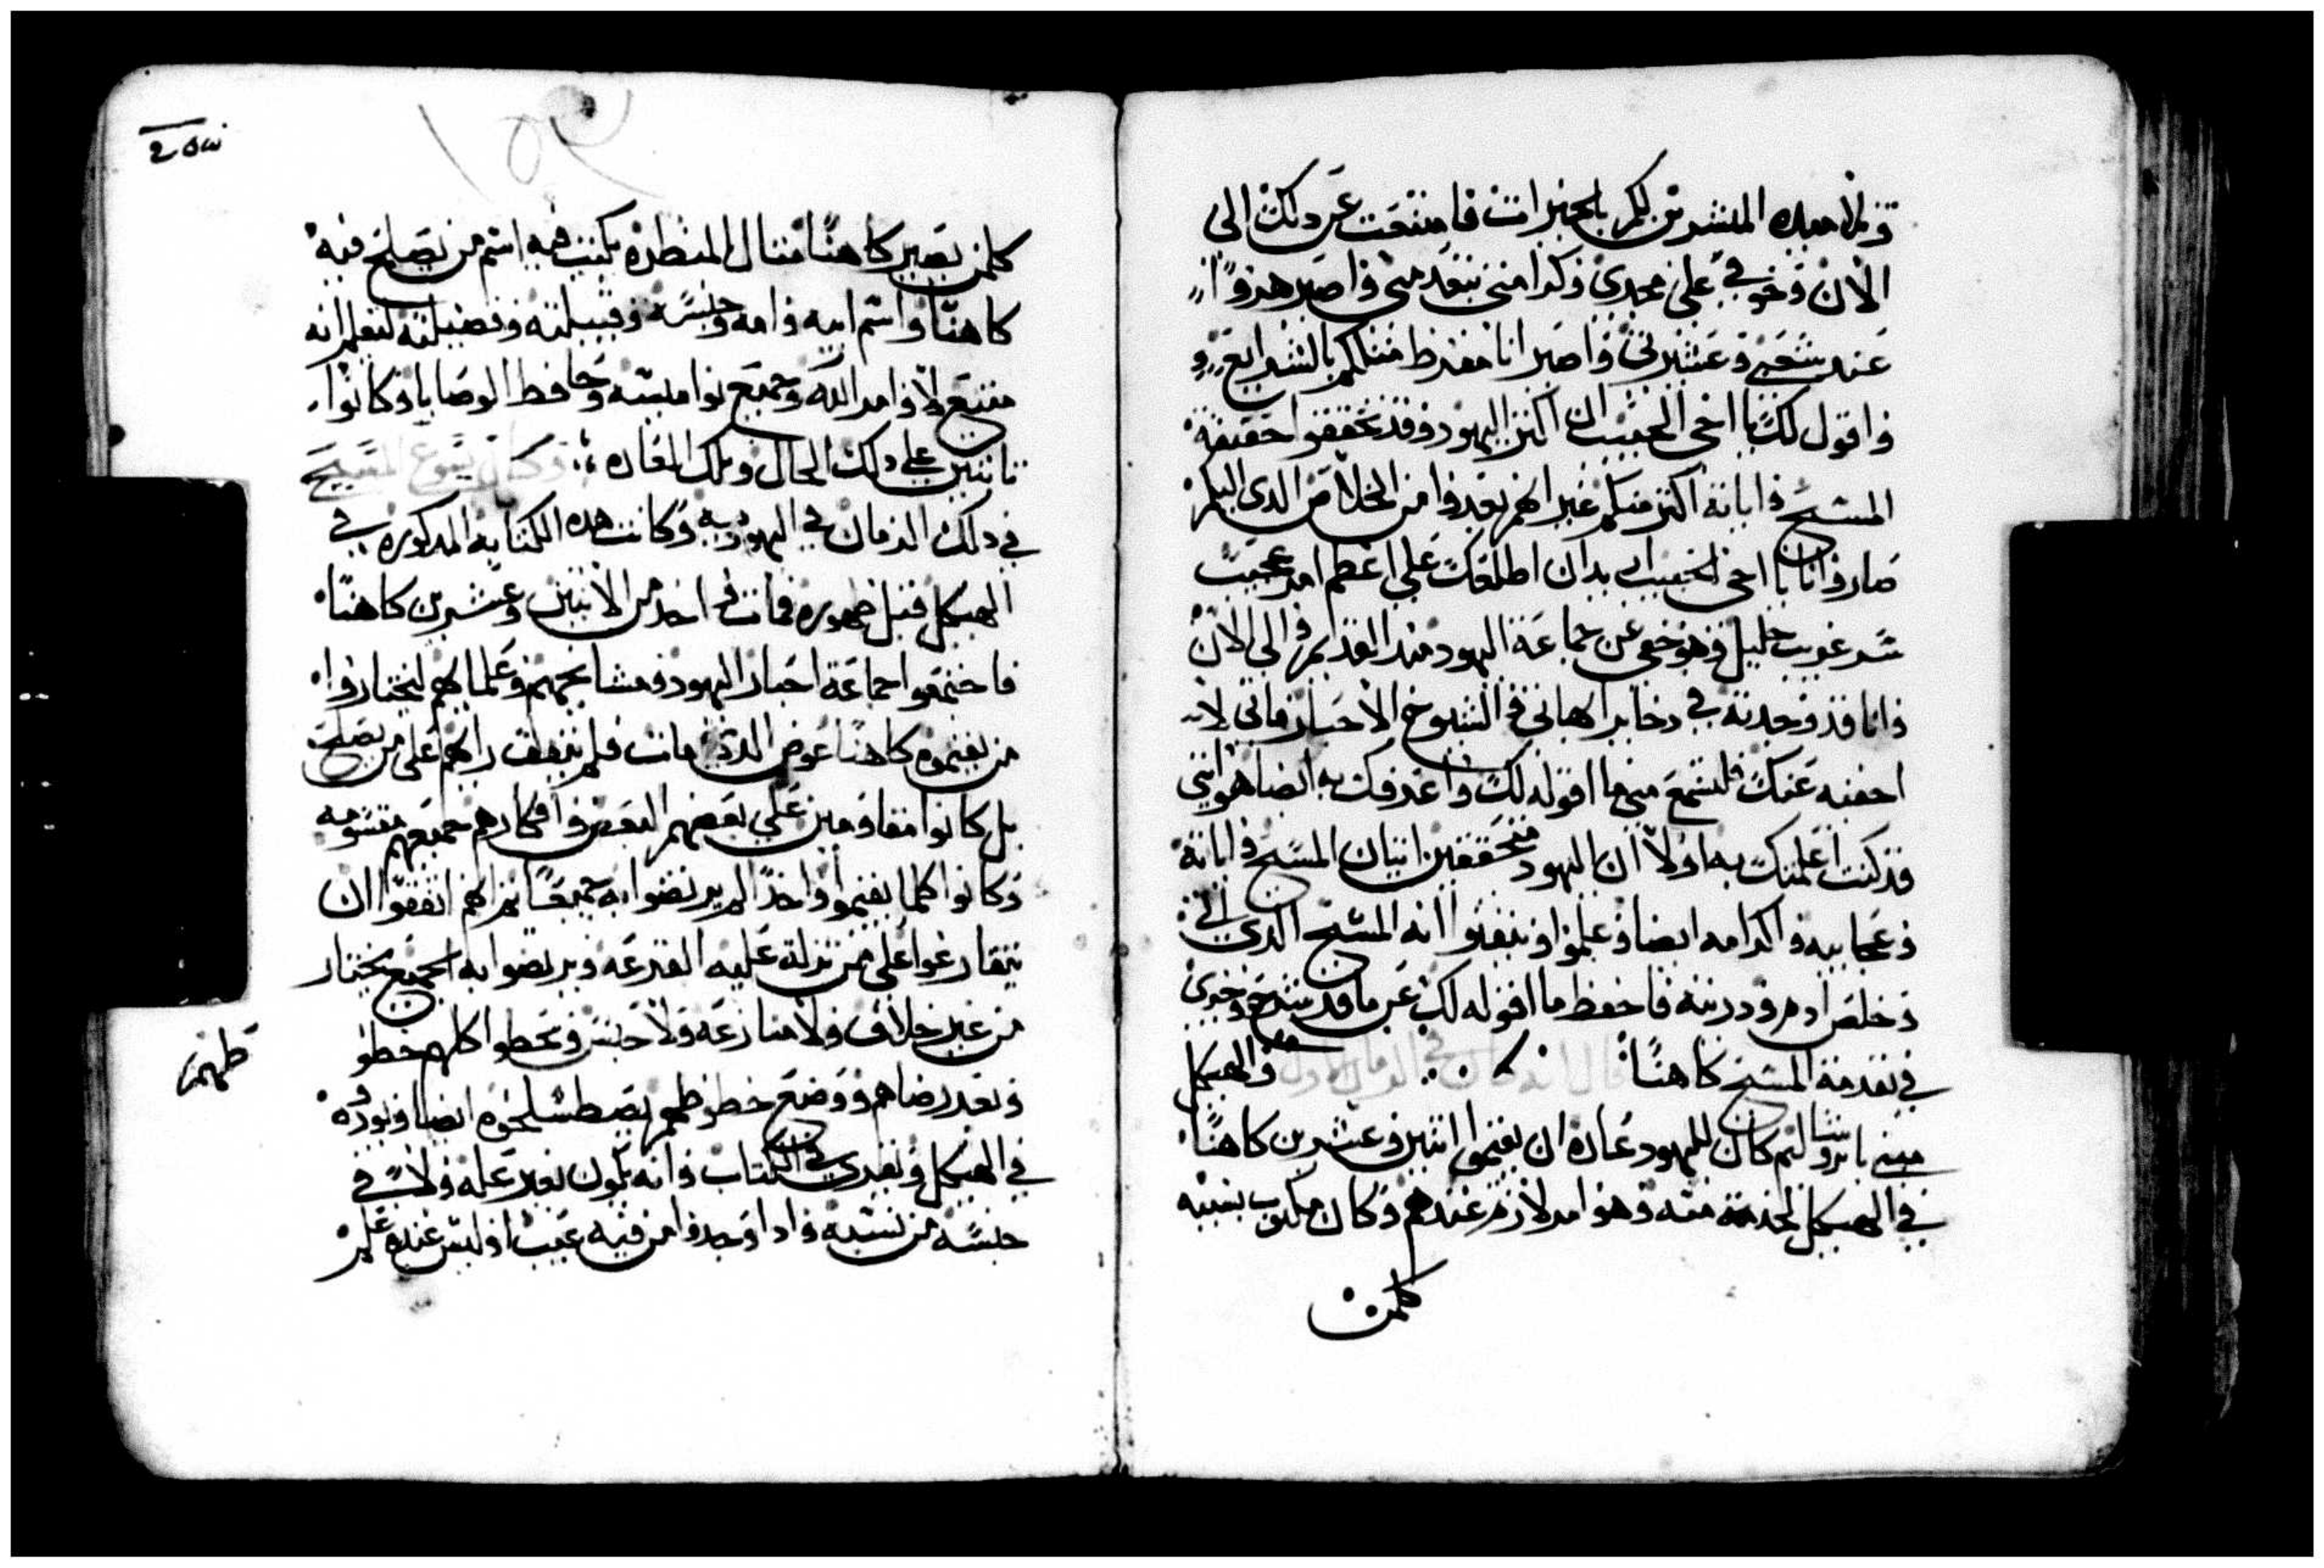 المبشرين لكم بالخيرات فامتنعت عن دلك الى
الان وخوفي على مجدي وكرامتي تتقدمني واصير هزوًا
عند شعبي وعشيرتي واصير انا مفرط مثلكم بالشرايع
واقول لك يا اخي الحبيب ان اكتر اليهود وقد تحققوا حقيقة
المسيح واياته اكتر منكم غير انهم بعدوا من الخلاص الدي اليكم
صار وانا يا اخي الحبيب اريد ان اطلعك على اعظم امر عجيب
سر غريب جليل وهو خفي عن جماعة اليهود منذ القديم والى الان
وانا قد وجدته في دخاير الشيوخ الاحبار
اخفيه عنك فلتسمع مني ما اقوله لك واعرفك به ايضا هو انني
قد كنت اعلمتك به اولا ان اليهود متحققين اتيان المسيح واياته
وعجايبه واكرامه ايضا وعلموا وتيقنوا انه المسيح الدي اتى
وخلص ادم ودريته فاحفظ ما اقوله لك عن ما قد شرح وجرى
في تقدمة المسيح كاهنًا قال انه كان في الزمان الاول والهيكل
مبني بايروشاليم كان لليهود عادة ان يقيموا اتنين وعشرين كاهنًا
في الهيكل لخدمته وهو امر لازم عندهم وكان مكتوب
كلمن
كلمن يصير كاهنًا يكتب فيه اسم من يصلح فيه
كاهنًا واسم ابيه وامه وجنسه وقبيلته وفضيلته ليعلم انه
متبع لاوامر الله وجميع نواميسه وحافظ الوصايا وكانوا
تابتين على دلك الحال وتلك العاده وكان يسوع المسيح
في دلك الزمان في اليهودية وكانت هده الكتابه المدكوره في
الهيكل قبل ظهوره فمات احد من الاتنين وعشرين كاهنًا
فاجتمعوا جماعة احبار اليهود ومشايخهم وعلماهم ليختاروا
من يقيموه كاهنًا عوض الدي مات فلم يتفق رايهم على من يصلح
بل كانوا مقاومين على بعضهم البعض وافكارهم جميعهم مقسومه
وكانوا كلما يقيموا واحدًا لم يرتضوا به جميعًا تم انهم اتفقوا ان
يتقارعوا على من تنزل عليه القرعه ويرتضوا به الجميع يختار
من غير خلاف ولا منازعه ولا جنس ويحطوا كلهم خطو
وبعد رضاهم ووضع خطوطهم ايضا
طهم
في الهيكل في الكتاب وانه يكون بغير علة ولا في
جنسه من نسبه وادا وجدوا من فيه عيب او ليس عنده علم